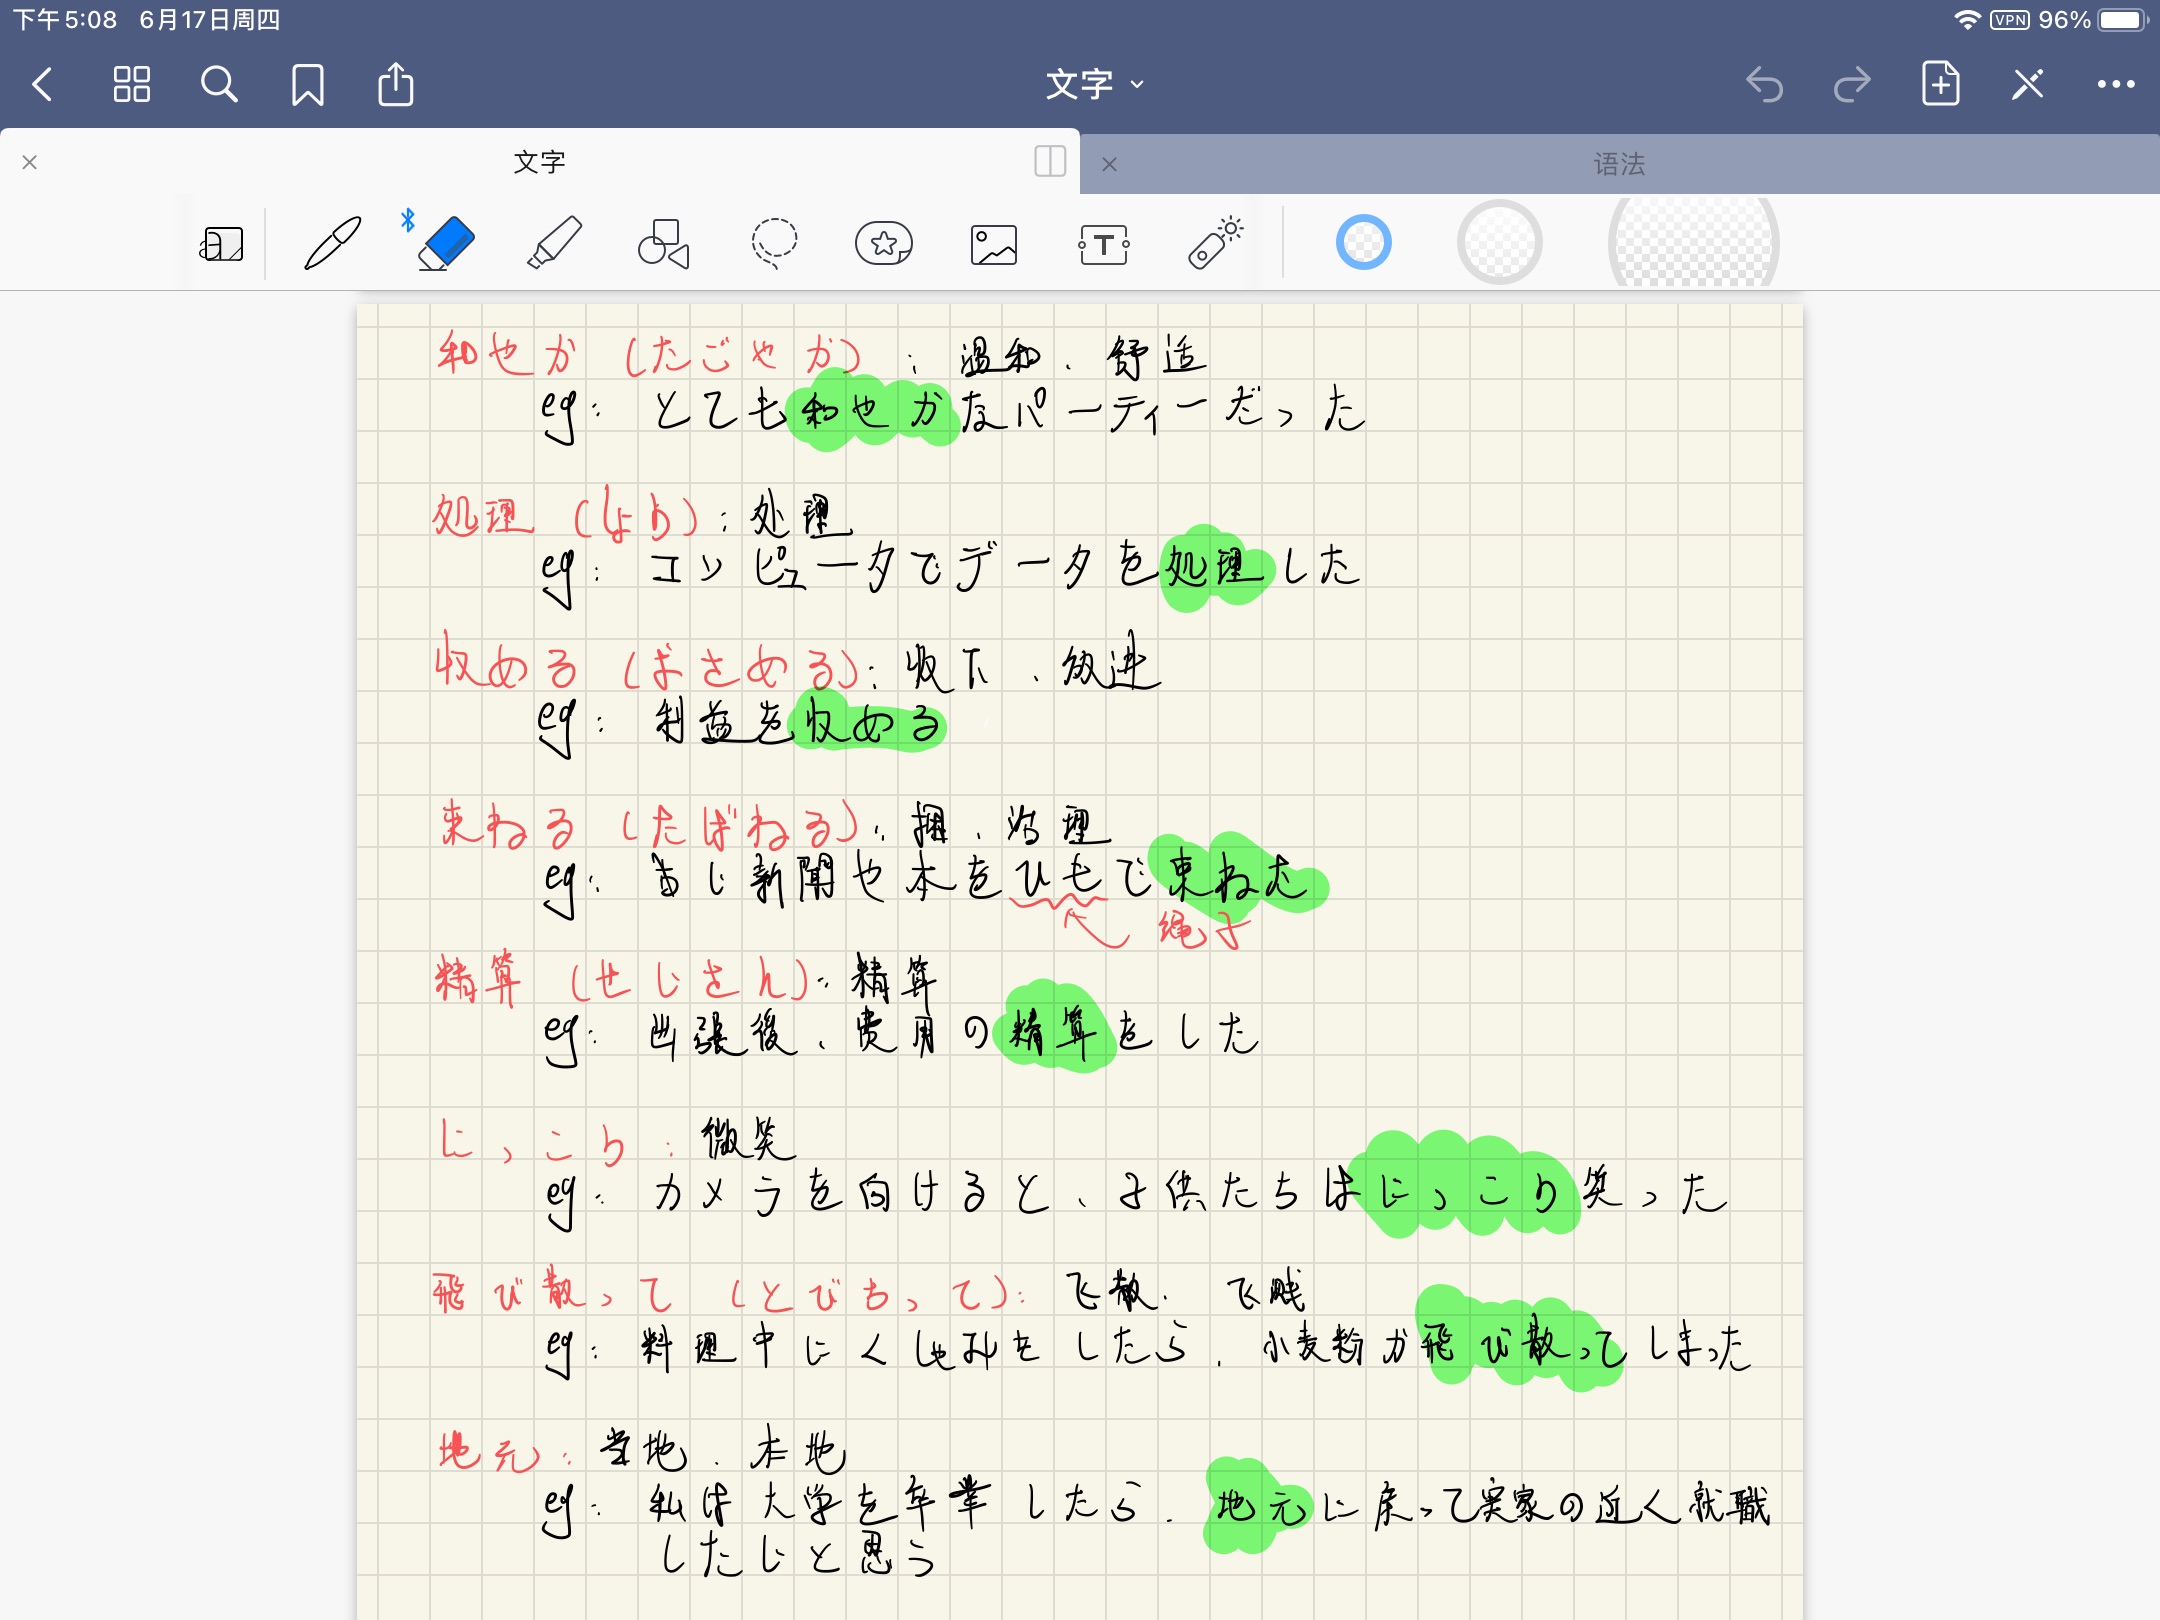 下午5:08 6月17日周四
VPN 96%
文字
文字
语法
和やか (したごやか) : 温和、舒适
eg: とても和やかなパーティーだった
処理 (しょり) : 处理
eg: コンピュータでデータを処理した
収める (おさめる) : 收下、放进
eg: 利益を収める
束ねる (たばねる) : 捆、治理
eg: 古い新聞や本をひもで束ねた
绳子
精算 (せいさん) : 精算
eg: 出張後、費用の精算をした
にっこり : 微笑
eg: カメラを向けると、子供たちはにっこり笑った
飛び散って (とびちって) : 飞散、飞溅
eg: 料理中にくしゃみをしたら、小麦粉が飛び散ってしまった
地元 : 当地、本地
eg: 私は大学を卒業したら、地元に戻って実家の近く就職
したいと思う